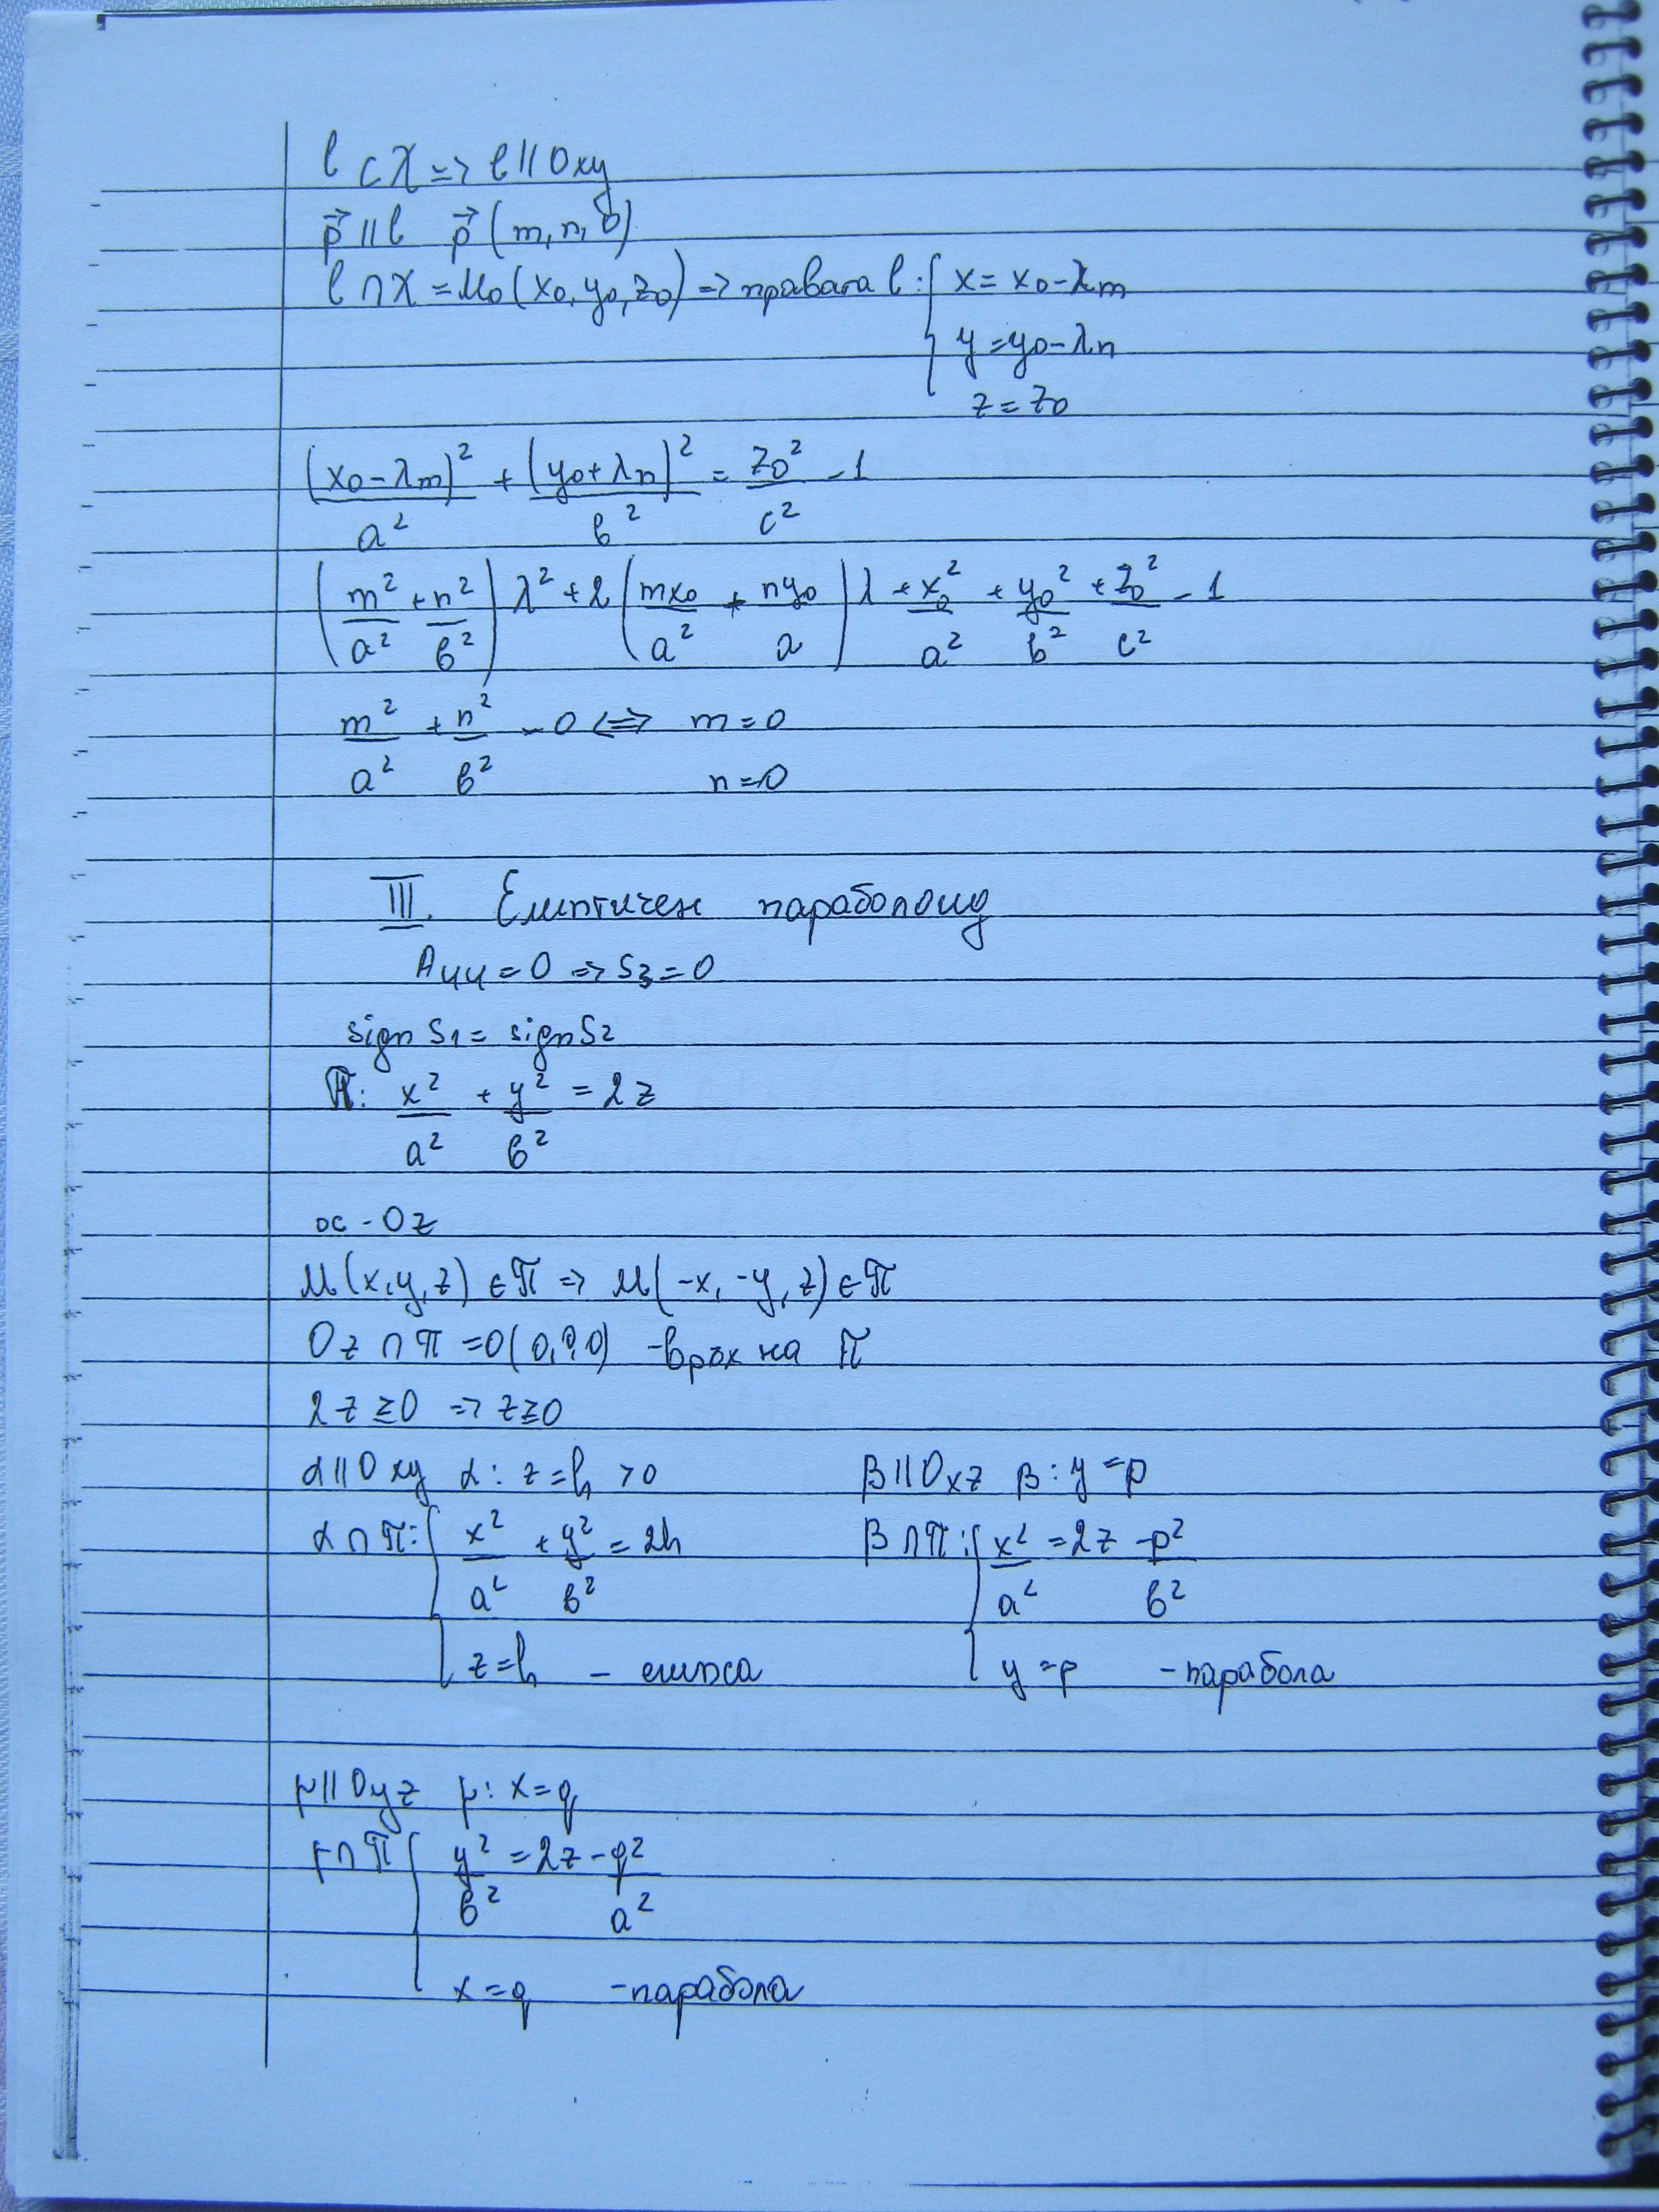 l ⊂ X => l || Oxy
p⃗ || l p⃗ (m, n, 0)
l ∩ X = M₀(x₀, y₀, z₀) => правата l : { x = x₀ - λm
y = y₀ - λn
z = z₀
(x₀ - λm)²/a² + (y₀ + λn)²/в² = z₀²/c² - 1
(m²/a² + n²/в²) λ² + 2 (mx₀/a² + ny₀/a) λ + x₀²/a² + y₀²/в² + z₀²/c² - 1
m²/a² + n²/в² - 0 <=> m = 0
n = 0
III. Елиптичен параболоид
A₄₄ = 0 => S₃ = 0
sign S₁ = sign S₂
π: x²/a² + y²/в² = 2z
ос - Oz
M(x, y, z) ∈ π => M(-x, -y, z) ∈ π
Oz ∩ π = O(0, 0, 0) - връх на π
2z ≥ 0 => z ≥ 0
α || Oxy α : z = h > 0 β || Oxz β : y = p
α ∩ π : { x²/a² + y²/в² = 2h β ∩ π : { x²/a² = 2z - p²/в²
z = h - елипса y = p - парабола
γ || Oyz γ : x = q
γ ∩ π { y²/в² = 2z - q²/a²
x = q - парабола